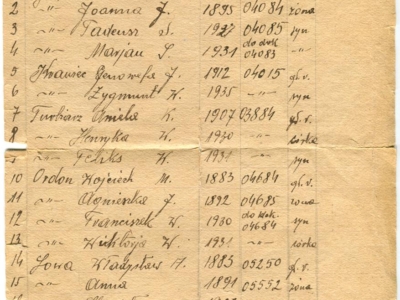 2 -"- Joanna J. 1895 04084 żona
3 -"- Tadeusz S. 1927 04085 syn
4 -"- Marjan S. 1931 do dok 04083 -"-
5 Genowefa J. 1912 04015 gł. r.
6 -"- Zygmunt W. 1935 -"- syn
7 Amelia K. 1907 03884 gł. r.
8 -"- Henryka W. 1930 -"- córka
9 -"- Feliks W. 1931 -"- syn
10 Ordon Wojciech M. 1883 04684 gł. r.
11 -"- Agnieszka J. 1892 04685 żona
12 -"- Franciszek W. 1930 do dok. 04684 syn
13 -"- Wiktorja W. 1931 -"- córka
14 Sowa Władysław A. 1885 05250 gł. r.
15 -"- Anna 1891 05552 żona